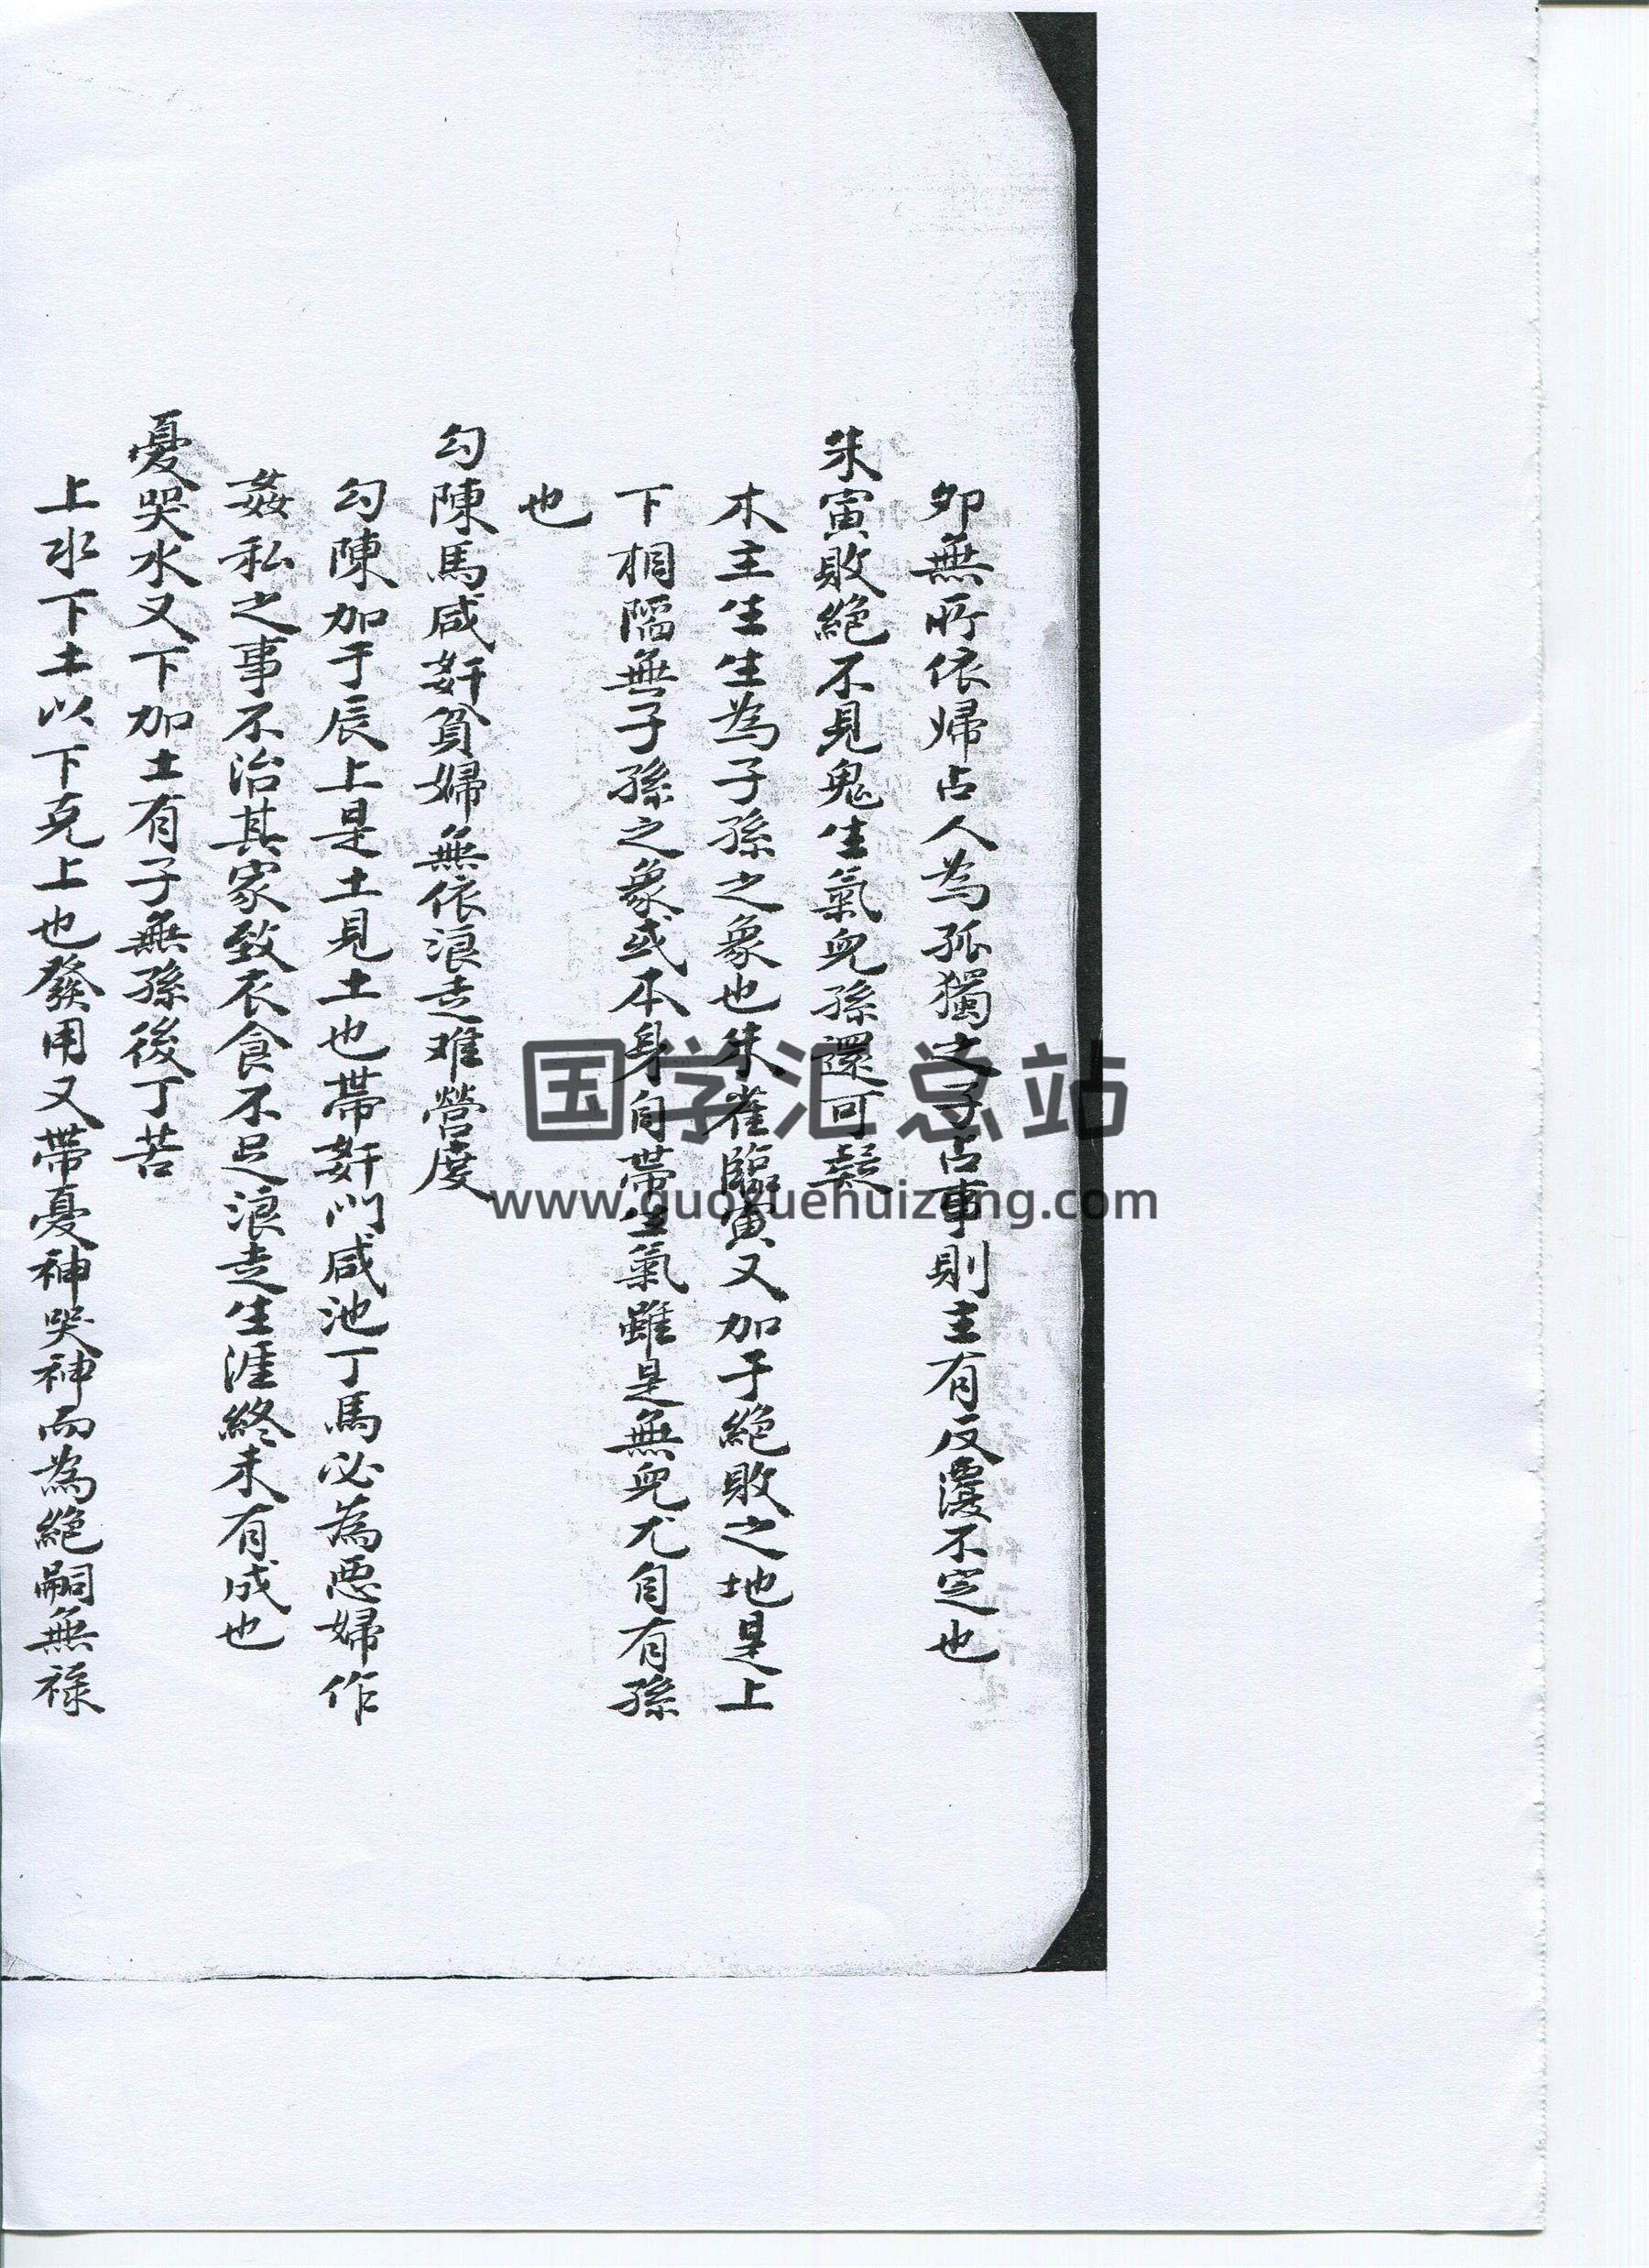 卯無所依歸占人為孤獨之子占事則主有反覆不定也
朱寅敗絕不見鬼生氣兒孫還可疑
木主生生為子孫之象也朱雀臨寅又加于絕敗之地是上
下相陷無子孫之象或本身自帶生氣雖是無兒尤自有孫
也
勾陳馬咸奸貧婦無依浪走难營度
勾陳加于辰上是土見土也帶奸门咸池丁馬必為悪婦作
姦私之事不治其家致衣食不足浪走生涯終未有成也
憂哭水又下加土有子無孫後丁苦
上水下土以下克上也發用又帶憂神哭神而為絕嗣無祿
国学汇总站
www.guoxuehuizong.com